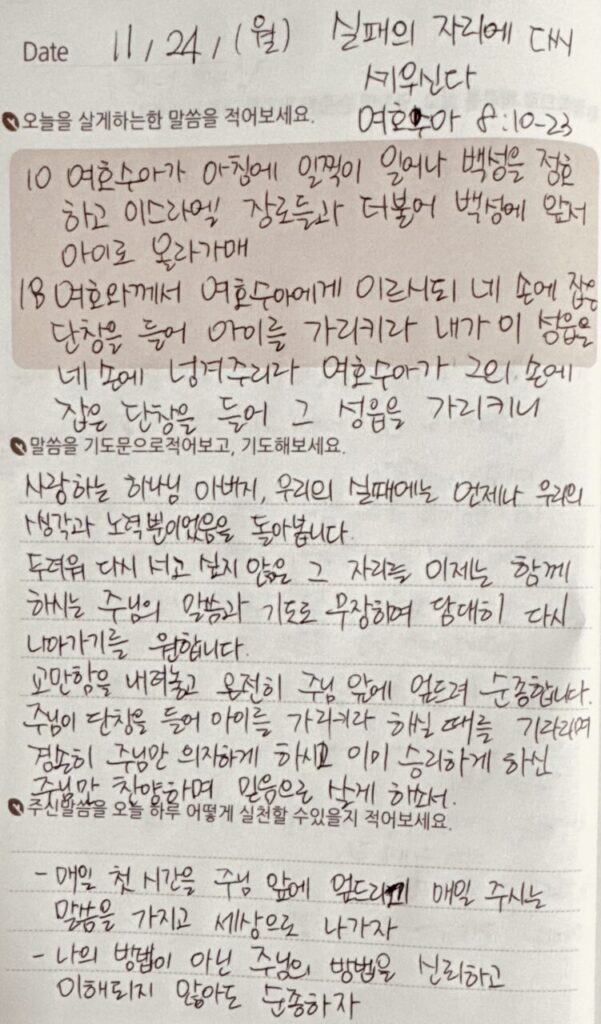 Date 11/24/(월) 실패의 자리에 다시
세우신다
오늘을 살게하는한 말씀을 적어보세요.
여호수아 8:10-23
10 여호수아가 아침에 일찍이 일어나 백성을 점호
하고 이스라엘 장로들과 더불어 백성에 앞서
아이로 올라가매
18 여호와께서 여호수아에게 이르시되 네 손에 잡은
단창을 들어 아이를 가리키라 내가 이 성읍을
네 손에 넘겨주리라 여호수아가 그의 손에
잡은 단창을 들어 그 성읍을 가리키니
말씀을 기도문으로적어보고, 기도해보세요.
사랑하는 하나님 아버지, 우리의 실패에는 언제나 우리의
생각과 노력뿐이었음을 돌아봅니다.
두려워 다시 서고 싶지 않은 그 자리를 이제는 함께
하시는 주님의 말씀과 기도로 무장하며 담대히 다시
나아가기를 원합니다.
교만함을 내려놓고 온전히 주님 앞에 엎드려 순종합니다.
주님이 단창을 들어 아이를 가리키라 하실 때를 기다리며
겸손히 주님만 의지하게 하시고 이미 승리하게 하신
주님만 찬양하며 믿음으로 살게 하소서.
주신말씀을 오늘 하루 어떻게 실천할 수있을지 적어보세요.
- 매일 첫 시간을 주님 앞에 엎드리고 매일 주시는
말씀을 가지고 세상으로 나가자
- 나의 방법이 아닌 주님의 방법을 신뢰하고
이해되지 않아도 순종하자